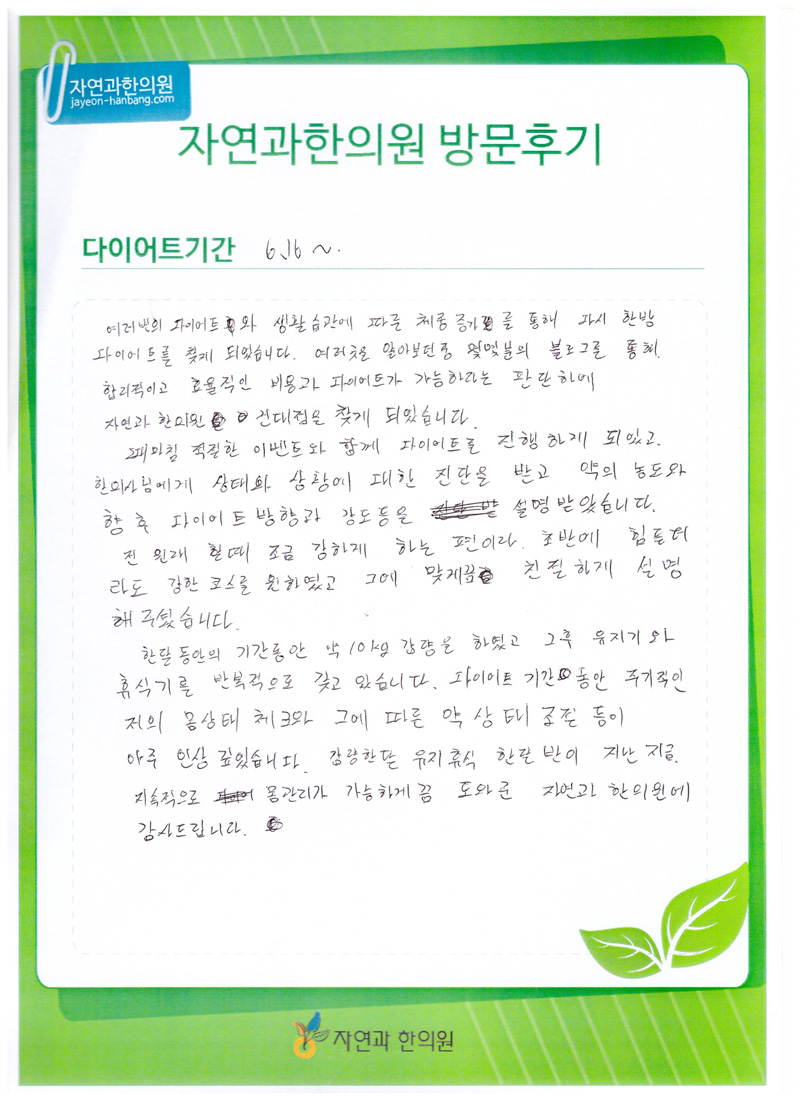 자연과한의원
jayeon-hanbang.com
자연과한의원 방문후기
다이어트기간 6.16 ~.
여러번의 다이어트와 생활습관에 따른 체중증가를 통해 다시 한방
다이어트를 찾게 되었습니다. 여러곳을 알아보던중 몇몇분의 블로그를 통해.
합리적이고 효율적인 비용과 다이어트가 가능하다는 판단하에
자연과 한의원 건대점을 찾게 되었습니다.
때마침 적절한 이벤트와 함께 다이어트를 진행하게 되었고.
한의사님에게 상태와 상황에 대한 진단을 받고 약의 농도와
향후 다이어트 방향과 강도등을 설명받았습니다.
전 원래 할때 조금 강하게 하는 편이라. 초반에 힘들더
라도 강한 코스를 원하였고 그에 맞게끔 친절하게 설명
해 주셨습니다.
한달 동안의 기간동안 약 10kg 감량을 하였고 그후 유지기와
휴식기를 반복적으로 갖고 있습니다. 다이어트 기간동안 주기적인
저의 몸상태 체크와 그에 따른 약 상태 조절 등이
아주 인상 깊었습니다. 감량한달 유지휴식 한달 반이 지난 지금.
지속적으로 몸관리가 가능하게끔 도와준 자연과 한의원에
감사드립니다.
자연과 한의원